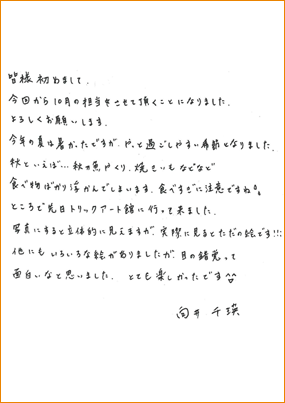 皆様初めまして。
今回から10月の担当をさせて頂くことになりました。
よろしくお願いします。
今年の夏は暑かったですが、やっと過ごしやすい季節となりました。
秋といえば…秋の魚やくり、焼きいもなどなど
食べ物ばかり浮かんでしまいます。食べすぎに注意ですね。
ところで先日トリックアート館に行って来ました。
写真にすると立体的に見えますが、実際に見るとただの絵です!!!
他にもいろいろな絵がありましたが、目の錯覚って
面白いなと思いました。 とても楽しかったです^^
向井 千瑛